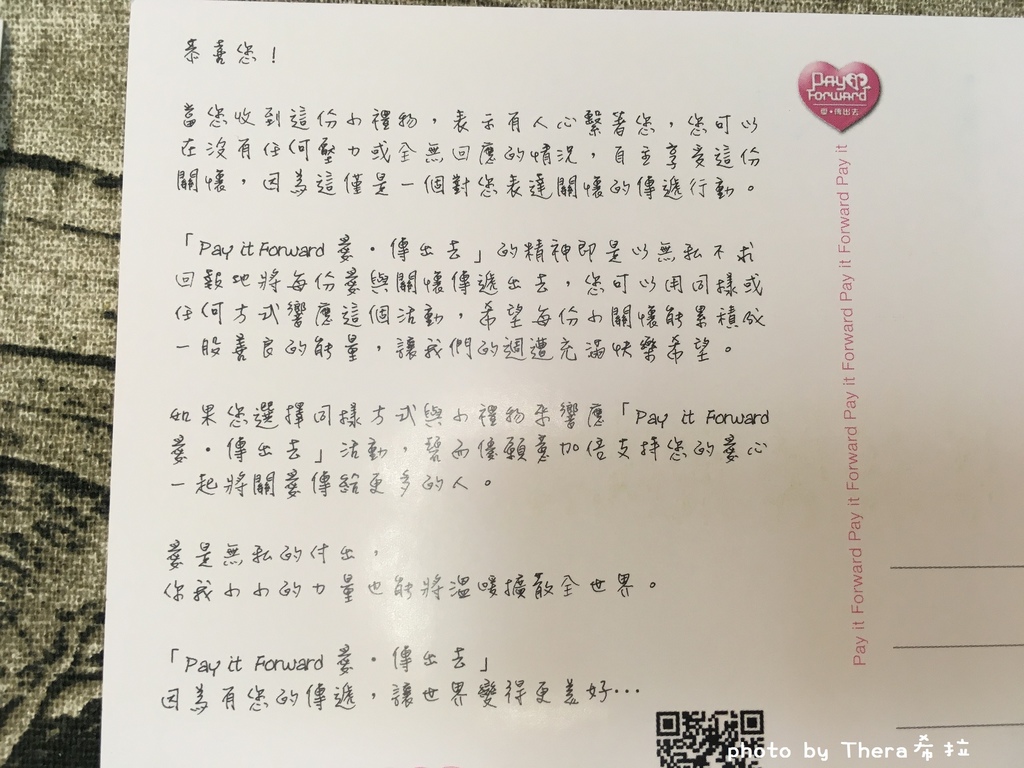 恭喜您！
當您收到這份小禮物，表示有人心繫著您，您可以
在沒有任何壓力或全無回應的情況，自主享受這份
關懷，因為這僅是一個對您表達關懷的傳遞行動。
「Pay it Forward 愛・傳出去」的精神即是以無私不求
回報地將每份愛與關懷傳遞出去，您可以用同樣或
任何方式響應這個活動，希望每份小關懷能累積成
一股善良的能量，讓我們的週遭充滿快樂希望。
如果您選擇同樣方式與小禮物來響應「Pay it Forward
愛・傳出去」活動，碧而優願意加倍支持您的愛心
一起將關愛傳給更多的人。
愛是無私的付出，
你我小小的力量也能將溫暖擴散全世界。
「Pay it Forward 愛・傳出去」
因為有您的傳遞，讓世界變得更美好…
Pay it
Forward
愛・傳出去
Pay it Forward Pay it Forward Pay it Forward Pay it Forward Pay it
photo by Thera希拉